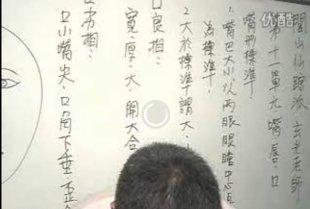 閭山仙蹤派 玄光老師
第十一單元 嘴唇、口
嘴形標準：
1. 嘴巴大小，以兩眼眼瞳中心
為標準！
2 大於標準謂大，
口良相：
寬、厚、大、開大合
口弟相：
口小嘴尖、口角下垂、歪
优酷